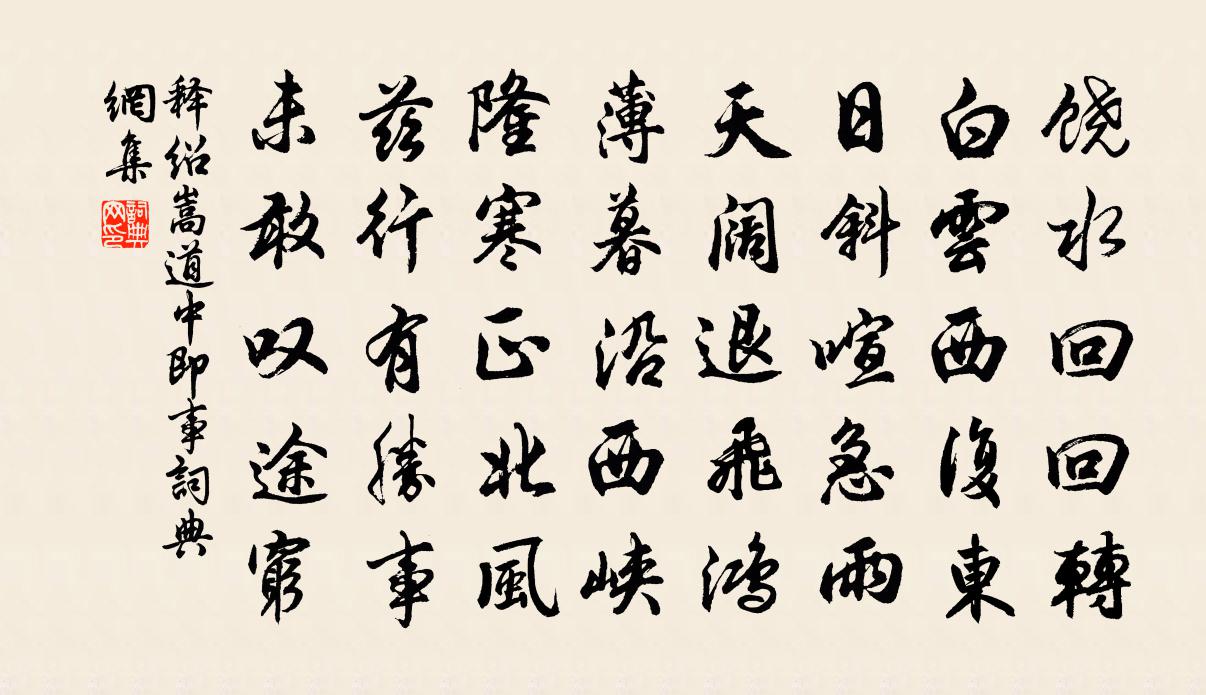 饶水回回轉
白雲西復東
日斜喧急雨
天阔退飛鴻
薄暮沿西峡
隆寒正北風
兹行有勝事
未敢叹途窮
释绍嵩道中即事詞典
網集
詞典网印